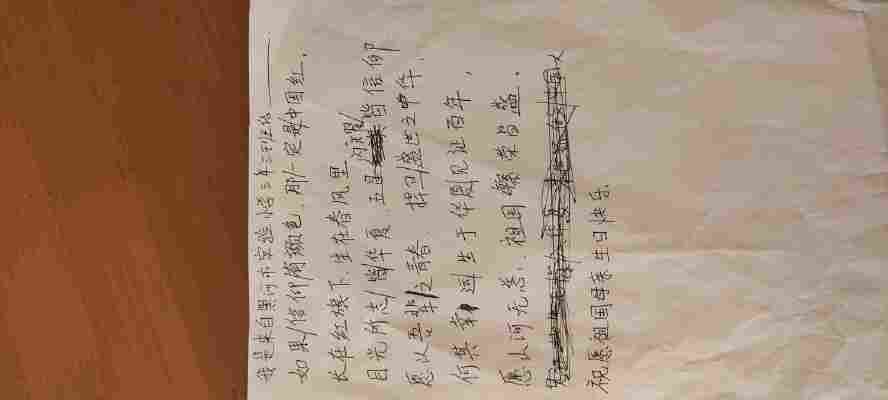 我是来自黑河市实验小学三年三班的
如果信仰有颜色，那一定是中国红，
长在红旗下，生在春风里
目光所志皆华夏，五星闪耀皆信仰
愿以吾辈之青春，捍卫盛世之中华，
何其幸运生于华夏见证百年，
愿山河无恙，祖国繁荣昌盛。
祝愿祖国母亲生日快乐